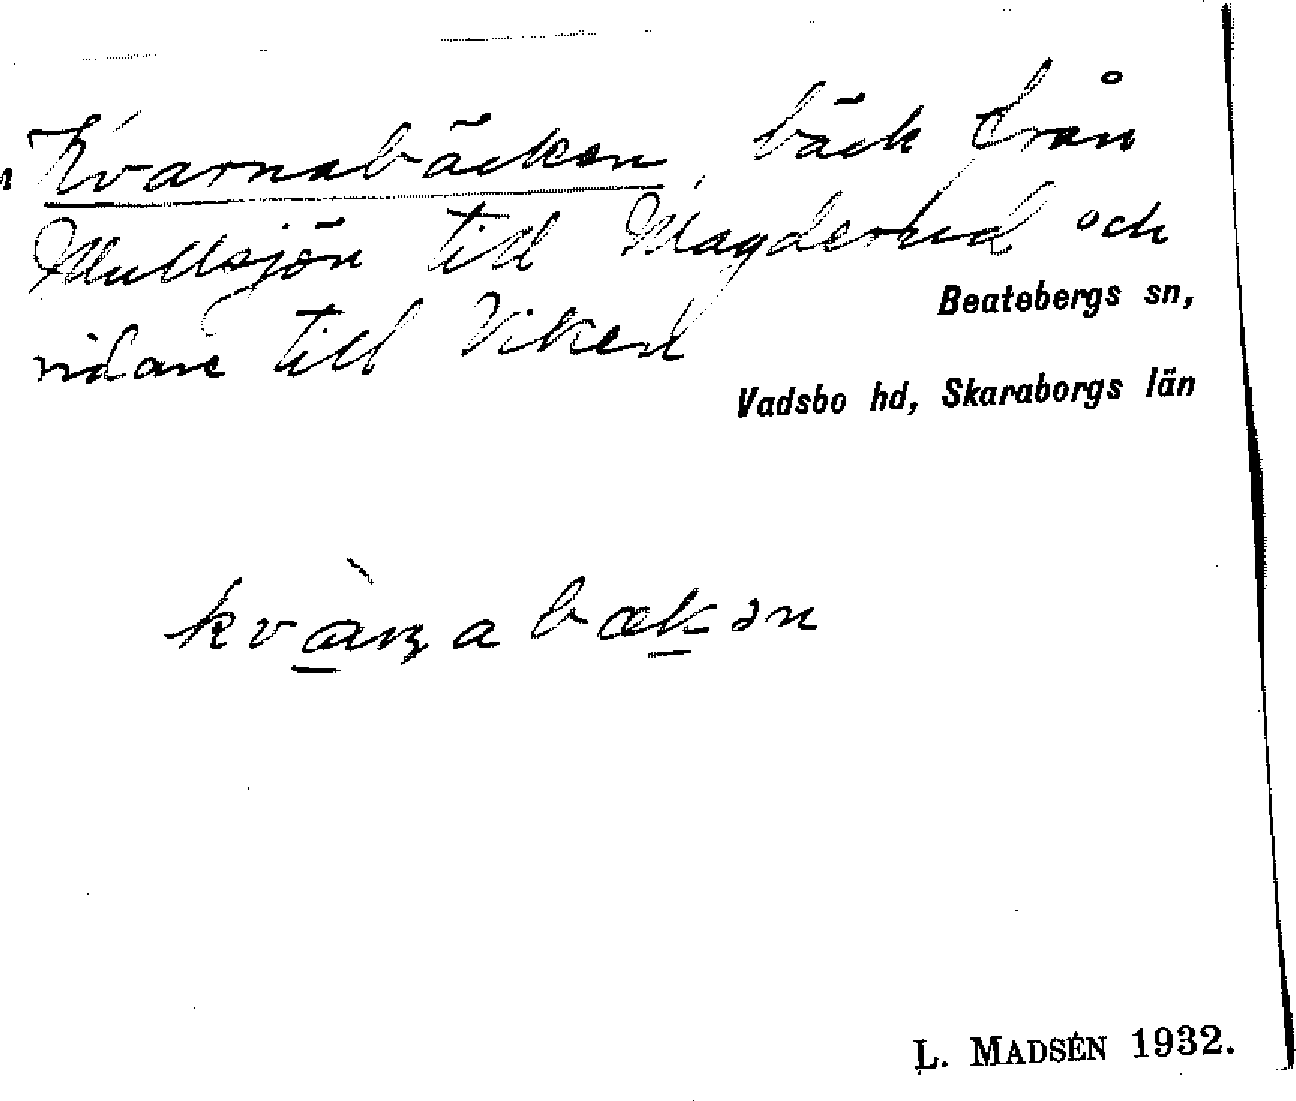 Kvarnabäcken, bäck från
Mullsjön till Magderud och
Beatebergs sn,
vidare till Viken
Vadsbo hd, Skaraborgs län
kvàṇabækən
L. MADSÉN 1932.